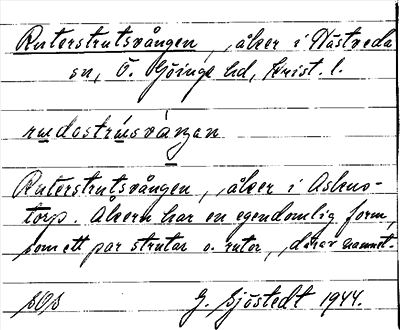 Ruterstrutsvången, åker i Hästveda
sn, Ö. Göinge hd, Krist. l.
rudastrúsváŋan
Ruterstrutsvången, åker i Asbus-
torp. Åkern har en egendomlig form,
som ett par strutar o. rutor, därav namnet.
sOs G. Sjöstedt 1944.